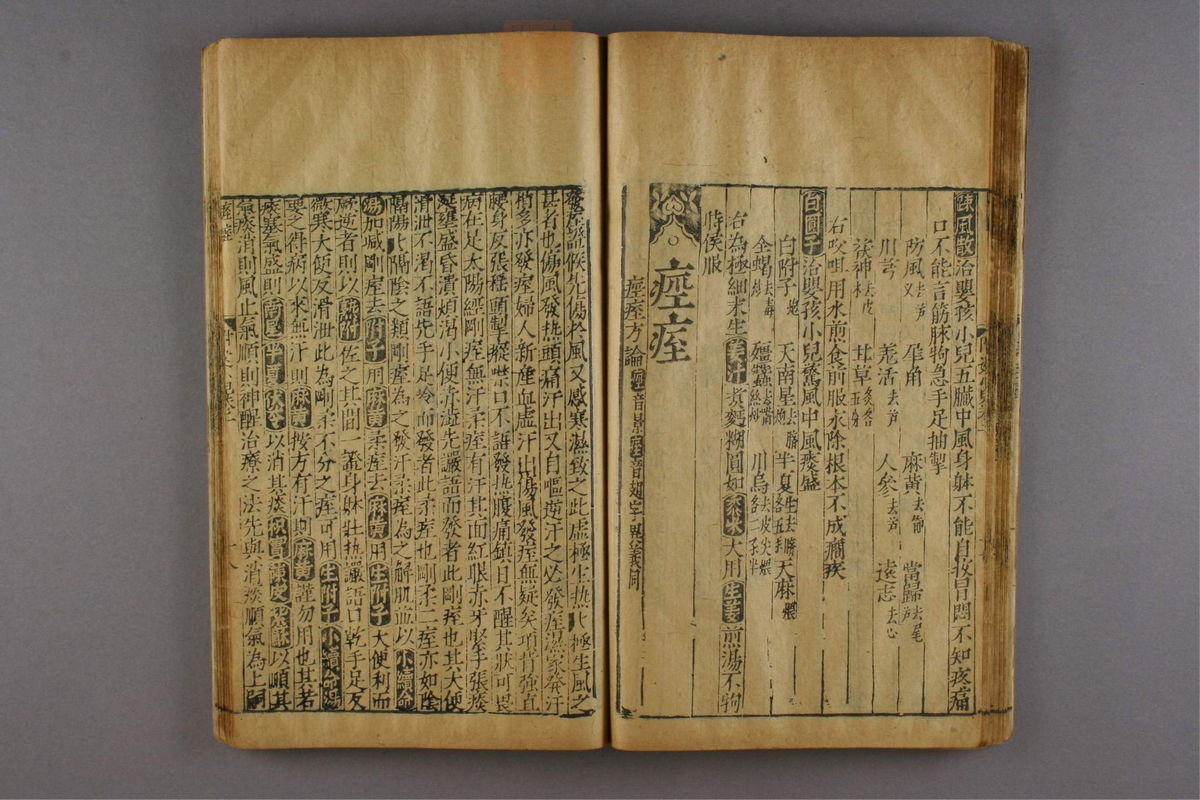 風散治嬰孩小兒五臟中風身躰不能自收冒悶不知疼痛
口不能言筋脉拘急手足抽掣
防風去芦又 犀角 麻黄去節 當歸去芦尾
川芎 羗活去芦 人參去芦 遠志去心
茯神去皮木 甘草
右㕮咀用水煎食前服永除根本不成癎疾
百圓子治嬰孩小兒驚風中風痰盛
白附子炮 天南星去臍炮 半夏生去臍各五 天麻煨
全蝎去毒炒 殭蠶去絲嘴炒 川烏去皮尖煨各二子半
右為極細末生姜汁煮麪糊圓如黍米大用生姜煎湯不拘
時候服
痙痓
痙痓方論痙音景痓音翅字異義同
發痓證候先傷於風又感寒濕致之此虛極生热热極生風之
甚者也傷風發热頭痛汗出又自嘔逆汗之必發痓濕家發汗
稍多亦發痓婦人新產血虛汗出傷風發痓無疑矣項背強直
腰身反張揺頭掣瘲噤口不語發热腹痛鎮日不醒其狀可畏
病在足太陽經剛痓無汗柔痓有汗其面紅眼赤牙堅手張痰
涎壅盛昏潰煩渴小便赤澁先讝語而發者此剛痓也其大便
滑泄不渴不語先手足冷而發者此柔痓也剛柔二痓亦如陰
陽陽陰之類剛痓為之發汗柔痓為之解肌並以小續命
湯加减剛痓去附子用麻黄柔痓去麻黄用生附子大便利而
厥逆者則以麻附佐之其間一證身躰壮热讝語口乾手足反
微寒大便反滑泄此為剛柔不分之痓可用生附子小續命湯
要之得病以來無汗則麻黄按方有汗則麻黄謹勿用也其若
痰塞氣盛則南星半夏茯苓以消其痰枳實陳皮紫蘇以順其
氣痰消則風止氣順則神醒治療之法先與消痰順氣為上嗣